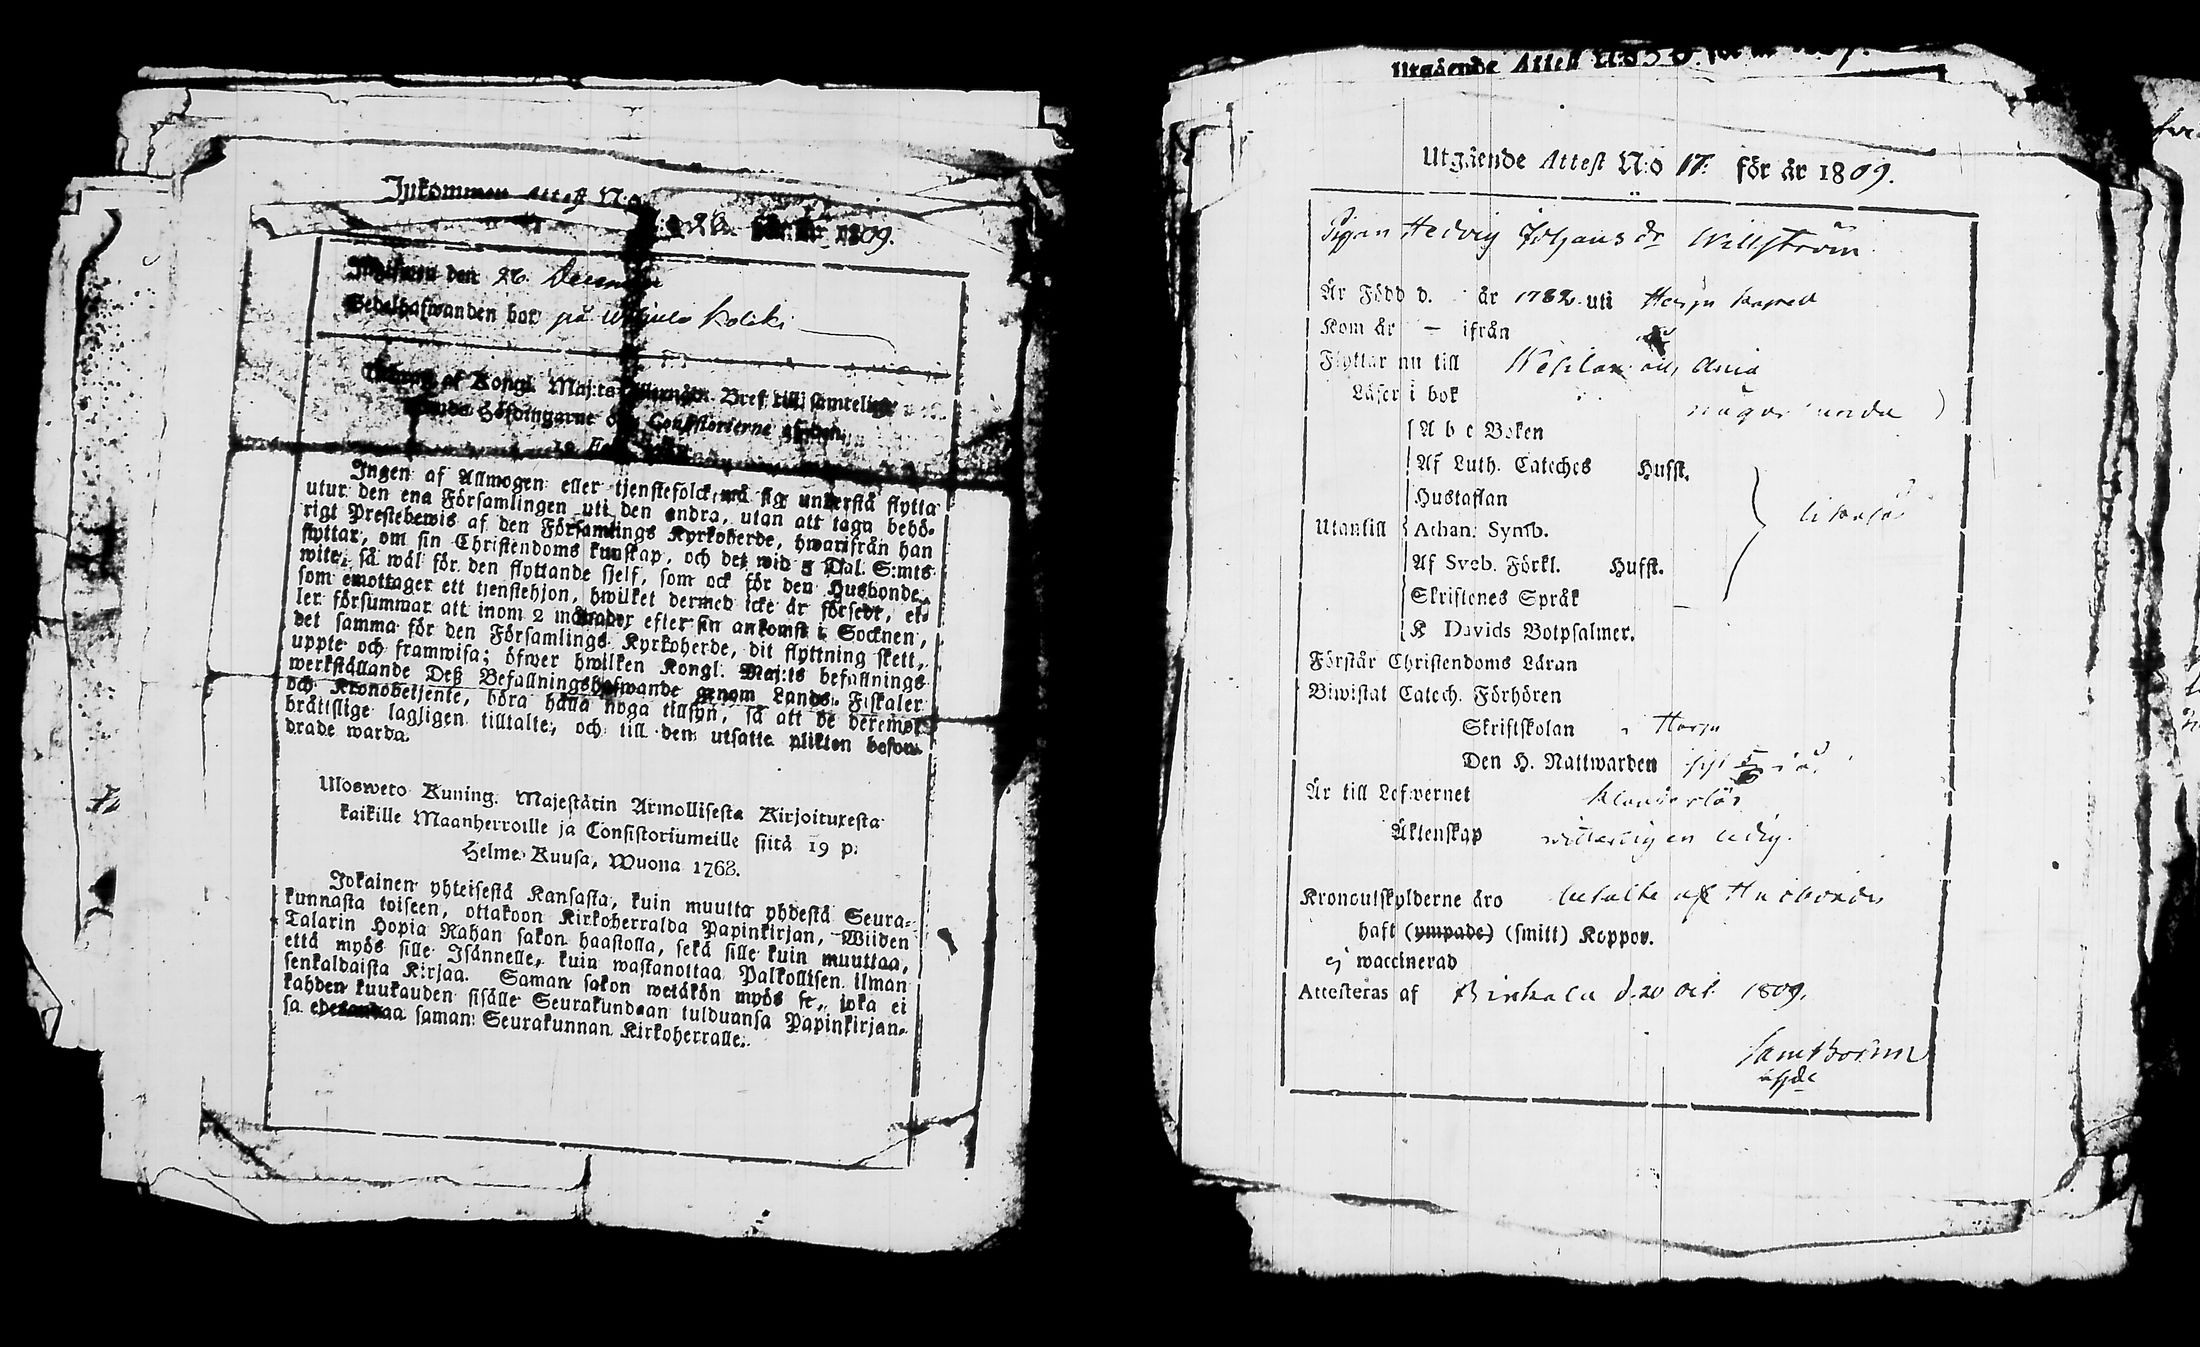 Inkommen Attest N:o 26. för år 1809.
Uppwisen den 26. December
Bedelhafwanden bor på
Utdrag af Kongl. Maj:ts Bref till samtelige
Höfdingarne och Consistorierne af den
19 Febr.
Ingen af Allmogen eller tjenstefolck må sig understå flytta
utur den ena Församlingen uti den andra, utan att taga behö-
rigt Prestebewis af den Församlings Kyrkoherde, hwarifrån han
flyttar, om sin Christendoms kunskap, och det wid 5 Dal. S:mts
wite, så wäl för den flyttande sjelf, som ock för den Husbonde,
som emottager ett tjenstehjon, hwilket dermed icke är försedt, el-
ler försummar att inom 2 månader efter sin ankomst i Socknen,
det samma för den Församlings Kyrkoherde, dit flyttning skett,
uppte och framwisa; öfwer hwilken Kongl. Maj:ts befallnings
werkställande Deß Befallningshafwande genom Lands-Fiskaler
och Kronobetjente, böra hålla noga tillsyn, så att de deremot
brättslige lagligen tilltalte, och till den utsatte plikten befor-
drade warda.
Ulosweto Kuning. Majestätin Armollisesta Kirjoituxesta
kaikille Maanherroille ja Consistoriumeille siitä 19 p.
Helme-Kuusa, Wuona 1763.
Jokainen yhteisestä Kansasta, kuin muutta yhdestä Seura-
kunnasta toiseen, ottakoon Kirkoherralda Papinkirjan, Wiiden
Talarin Hopia Rahan sakon haastolla, sekä sille kuin muuttaa,
että myös sille Isännelle, kuin wastanottaa Palkollisen ilman
senkaldaista Kirjaa. Saman sakon wetäkön myös se, joka ei
kahden kuukauden sisälle Seurakundaan tulduansa Papinkirjan-
sa edesandaa saman Seurakunnan Kirkoherralle.
Utgående Attest N:o
Utgående Attest N:o 17. för år 1809.
Pigan Hedvig Johans dr Willström
Är Född d. år 1782 uti Harju kapell
Kom år – ifrån
Flyttar nu till
Läser i bok någorlunda
A b c Boken
Af Luth. Cateches Hufst.
Hustaflan
Utantill Athan. Symb. likaså
Af Sveb. Förkl. Hufst.
Skriftenes Språk
K Davids Botpsalmer.
Förstår Christendoms Läran
Biwistat Catech. Förhören
Skriftskolan i Harju
Den H. Nattwarden
Är till Lefwernet klanderlös
Äktenskap witterligen ledig.
Kronoutskylderne äro betalte af Husbonden
haft (ympade) (smitt) Koppor.
ej waccinerad
Attesteras af Birkala d. 20 Oct. 1809.